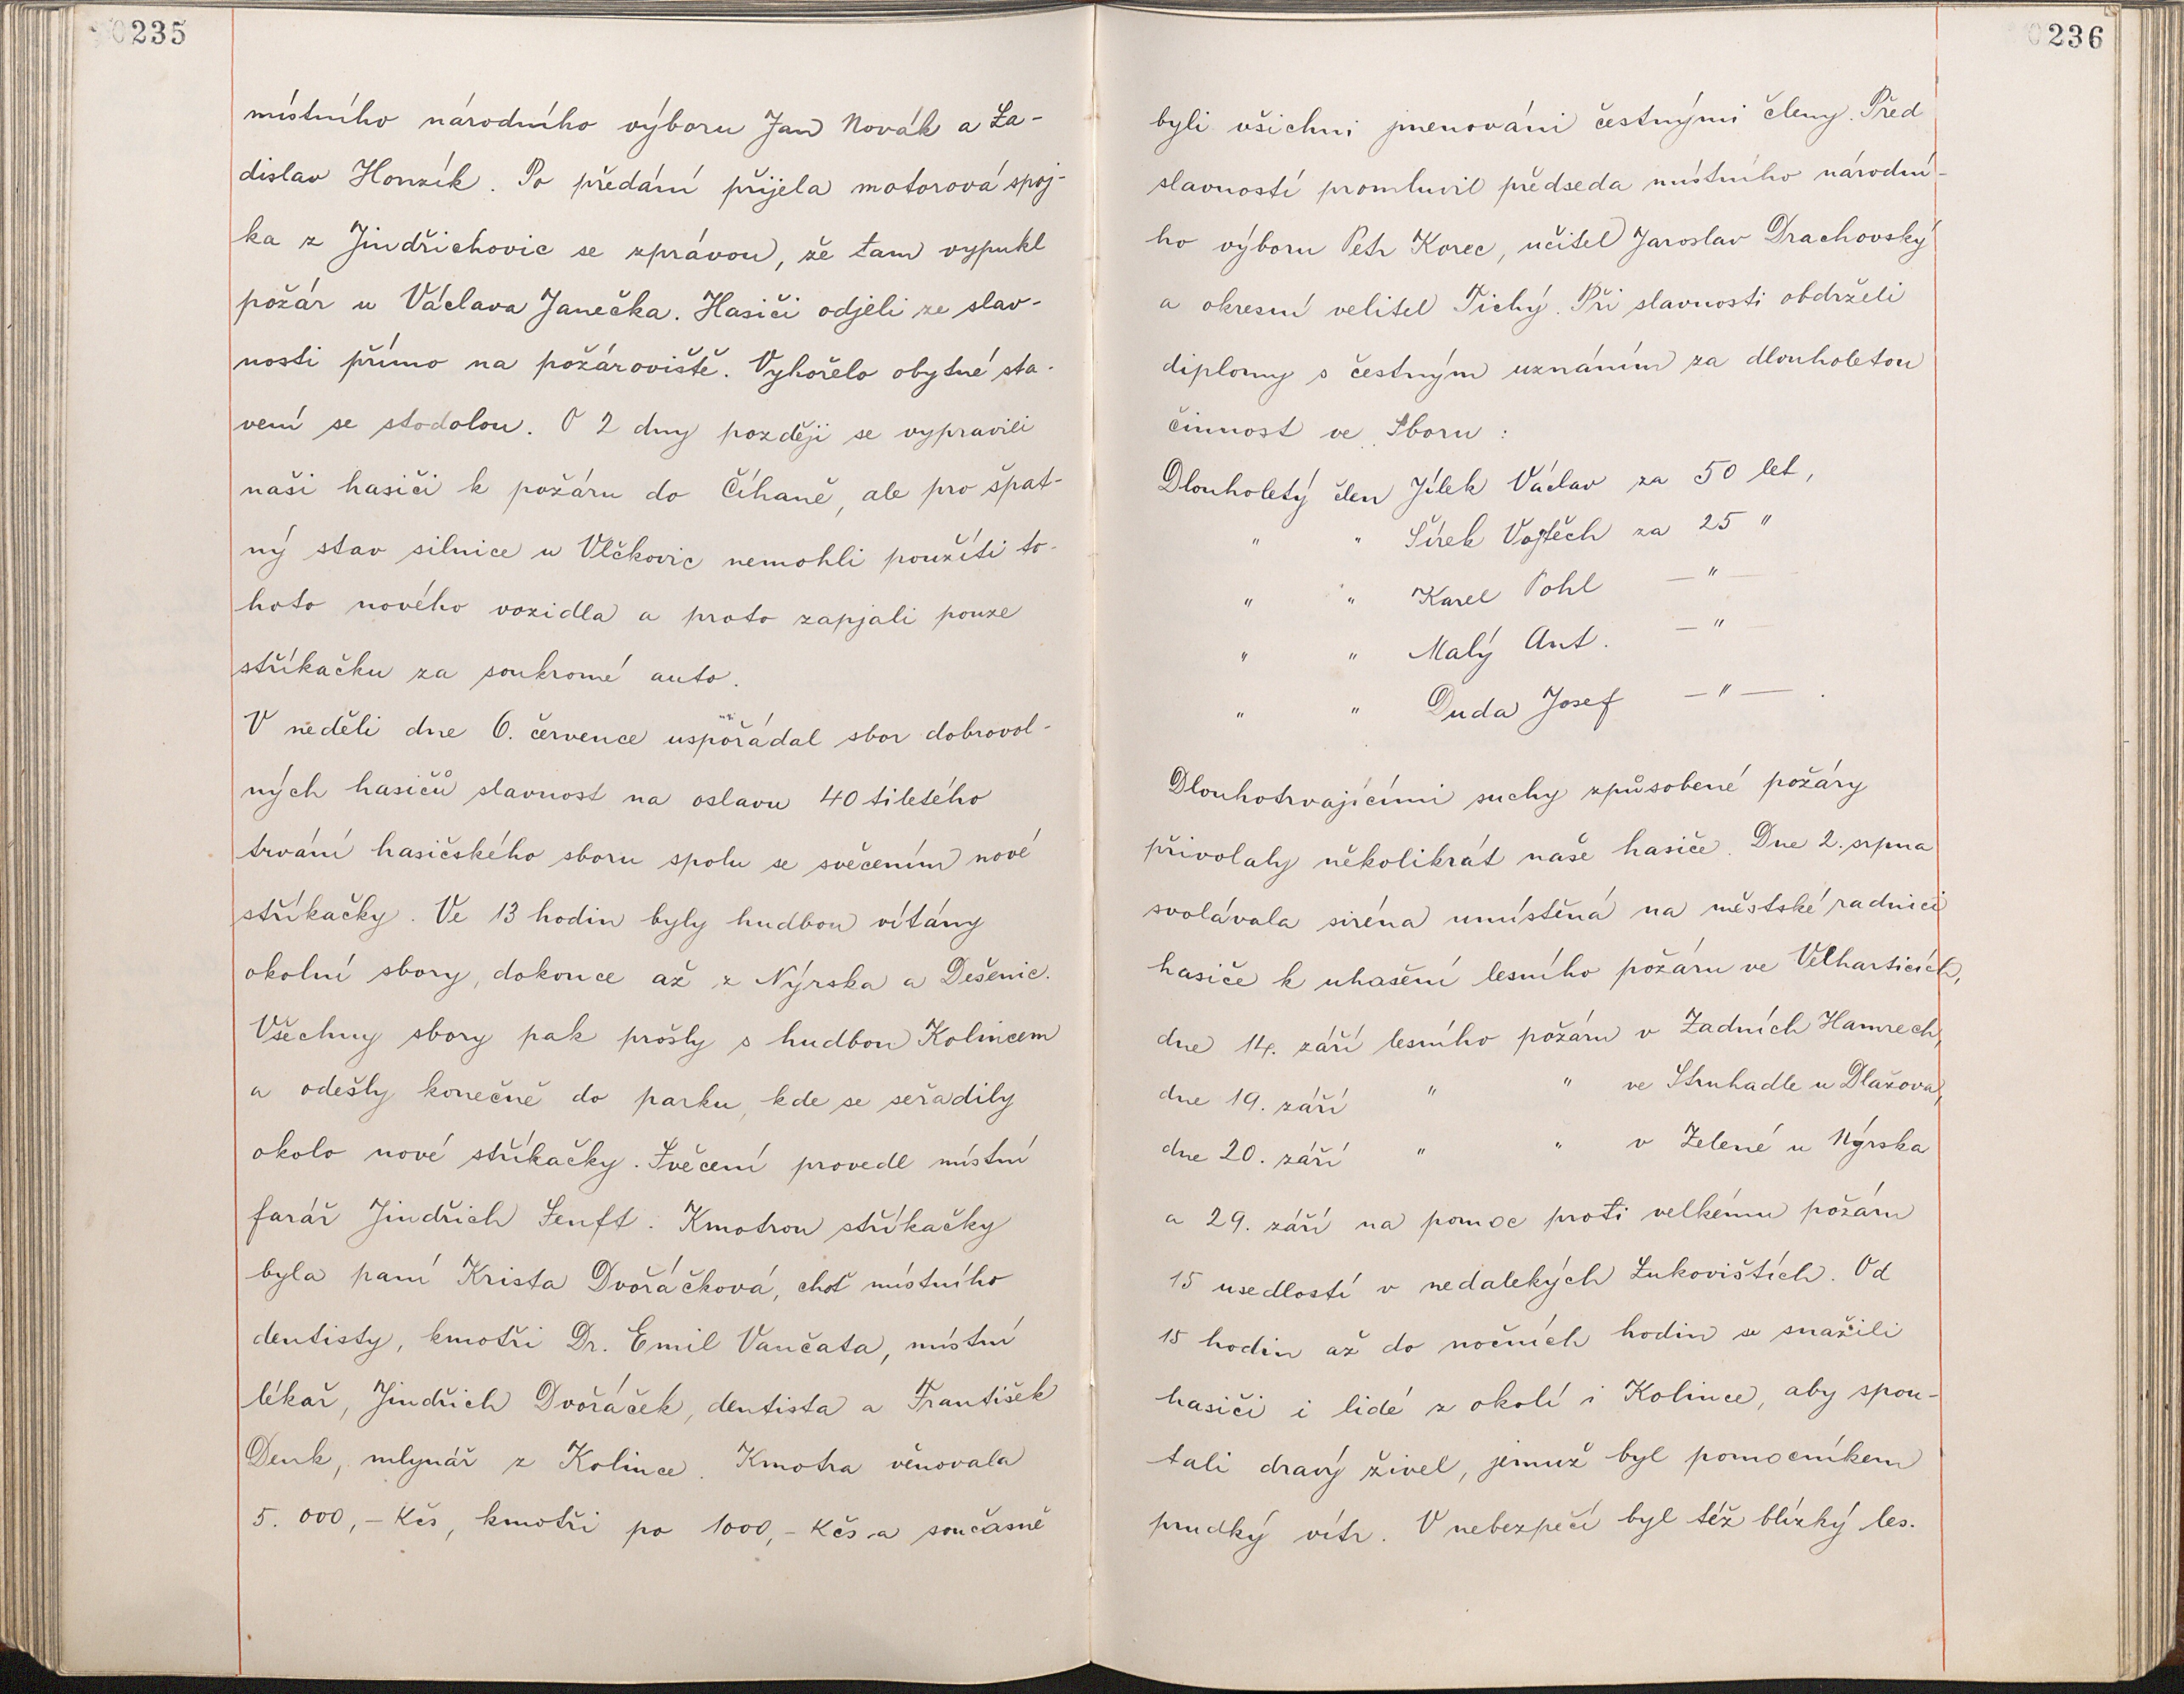 235
místního národního výboru Jan Novák a La-
dislav Honzík. Po předání přijela motorová spoj-
ka z Jindřichovic se zprávou, že tam vypukl
požár u Václava Janečka. Hasiči odjeli ze slav-
nosti přímo na požároviště. Vyhořelo obytné sta-
vení se stodolou. O 2 dny později se vypravili
naši hasiči k požáru do Číhaně, ale pro špat-
ný stav silnice u Vlčkovic nemohli použíti to-
hoto nového vozidla a proto zapjali pouze
stříkačku za soukromé auto.
V neděli dne 6. července uspořádal sbor dobrovol-
ných hasičů slavnost na oslavu 40 tiletého
trvání hasičského sboru spolu se svěcením nové
stříkačky. Ve 13 hodin byly hudbou vítány
okolní sbory, dokonce až z Nýrska a Dešenic.
Všechny sbory pak prošly s hudbou Kolincem
a odešly konečně do parku, kde se seřadily
okolo nové stříkačky. Svěcení provedl místní
farář Jindřich Senft. Kmotrou stříkačky
byla paní Krista Dvořáčková, choť místního
dentisty, kmotři Dr. Emil Vančata, místní
lékař, Jindřich Dvořáček, dentista a František
Denk, mlynář z Kolince. Kmotra věnovala
5.000,- Kčs, kmotři po 1000,- Kčs a současně
236
byli všichni jmenováni čestnými členy. Před
slavností promluvil předseda místního národní-
ho výboru Petr Korec, učitel Jaroslav Drachovský
a okresní velitel Tichý. Při slavnosti obdrželi
diplomy s čestným uznáním za dlouholetou
činnost ve Sboru:
Dlouholetý člen Jílek Václav za 50 let,
" " Šírek Vojtěch za 25 "
" " Karel Pohl —"—
" " Malý Ant. —"—
" " Duda Josef —"— .
Dlouhotrvajícími suchy způsobené požáry
přivolaly několikrát naše hasiče. Dne 2. srpna
svolávala siréna umístěná na městské radnici
hasiče k uhašení lesního požáru ve Velharticích,
dne 14. září lesního požáru v Zadních Hamrech,
dne 19. září " " ve Struhadle u Dlažova,
dne 20. září " " v Zelené u Nýrska
a 29. září na pomoc proti velkému požáru
15 usedlostí v nedalekých Lukovištích. Od
15 hodin až do nočních hodin se snažili
hasiči i lidé z okolí i Kolince, aby spou-
tali dravý živel, jemuž byl pomocníkem
prudký vítr. V nebezpečí byl též blízký les.